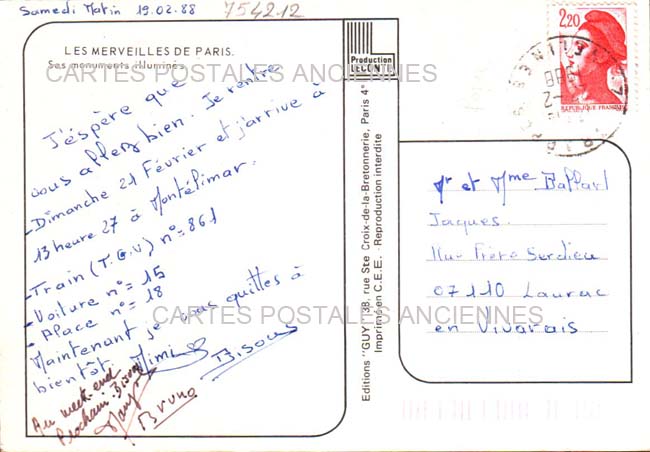 Samedi Matin 19.02.88
7542.12
LES MERVEILLES DE PARIS.
Ses monuments illuminés
CARTES POSTALES ANCIENNES
J'éspère que
vous allez bien. Je rentre
- Dimanche 21 Février et j'arrive à
13 heure 27 à Montélimar.
- Train (T.G.V) n°= 861
- Voiture n°= 15
- Place n°= 18
Maintenant je vous quittes à
bientôt. Mimi
Bisous
Au week-end
Prochain Bisous
Bruno
Production
LECONTE
Editions "GUY" 38, rue Ste Croix-de-la-Bretonnerie, Paris 4e
Imprimé en C.E.E. - Reproduction interdite
2,20
REPUBLIQUE FRANÇAISE
Mr et Mme
Jaques.
Rue Frère Serdieu
07110 Laurac
en Vivarais
CARTES POSTALES ANCIENNES